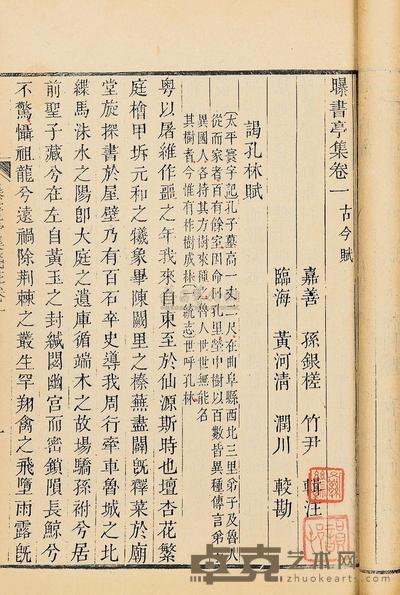 曝書亭集卷一 古今賦
嘉善 孫銀槎 竹尹 輯注
臨海 黃河清 潤川 較勘
謁孔林賦
太平寰宇記孔子墓高一丈二尺在曲阜縣西北三里弟子及魯人
從而家者百有餘室因命曰孔里塋中樹以百數皆異種傳言弟子
異國人各持其方樹來種之魯人世世無能名
其樹者今惟有柞樹成林一統志世呼孔林
粵以屠維作噩之年我來自東至於仙源斯時也壇杏花繁
庭檜甲坼元和之犧象畢陳闕里之榛蕪盡闢旣釋菜於廟
堂旋探書於屋壁乃有百石卒史導我周行牽車魯城之北
緤馬洙水之陽卽大庭之遺庫循端木之故場驕孫祔兮居
前聖子藏兮在左自黃玉之封緘閟幽宮而密鎖隕長鯨兮
不驚懾祖龍兮遠禍除荊棘之叢生罕翔禽之飛墮雨露旣
卓克艺术网
zhuokearts.com